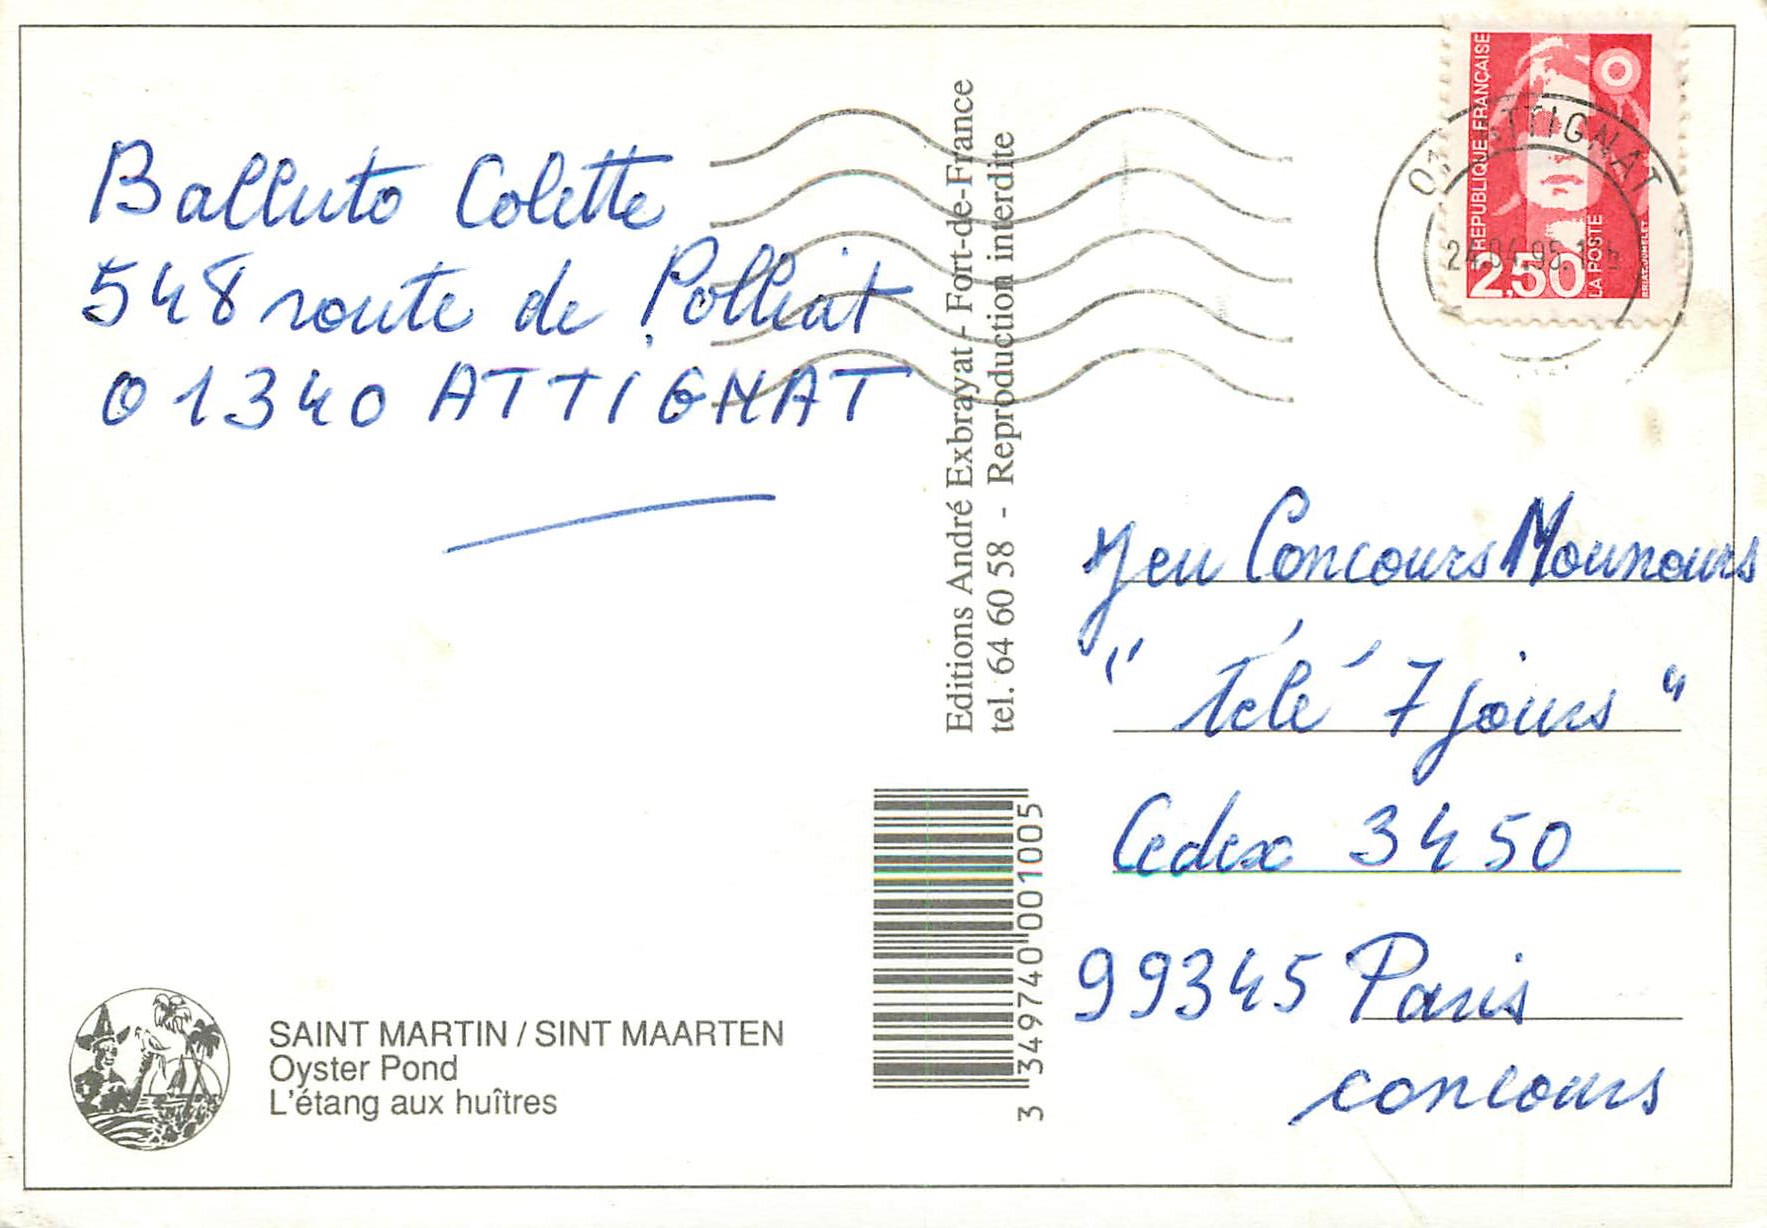 Balluto Colette
548 route de Polliat
01340 ATTIGNAT
Editions André Exbrayat - Fort-de-France
tel. 64 60 58 - Reproduction interdite
REPUBLIQUE FRANÇAISE
2,50
LA POSTE
ATTIGNAT
Jeu Concours Mounours
"Télé 7 jours"
Cedex 3450
99345 Paris
concours
3 349740 001005
SAINT MARTIN / SINT MAARTEN
Oyster Pond
L'étang aux huîtres